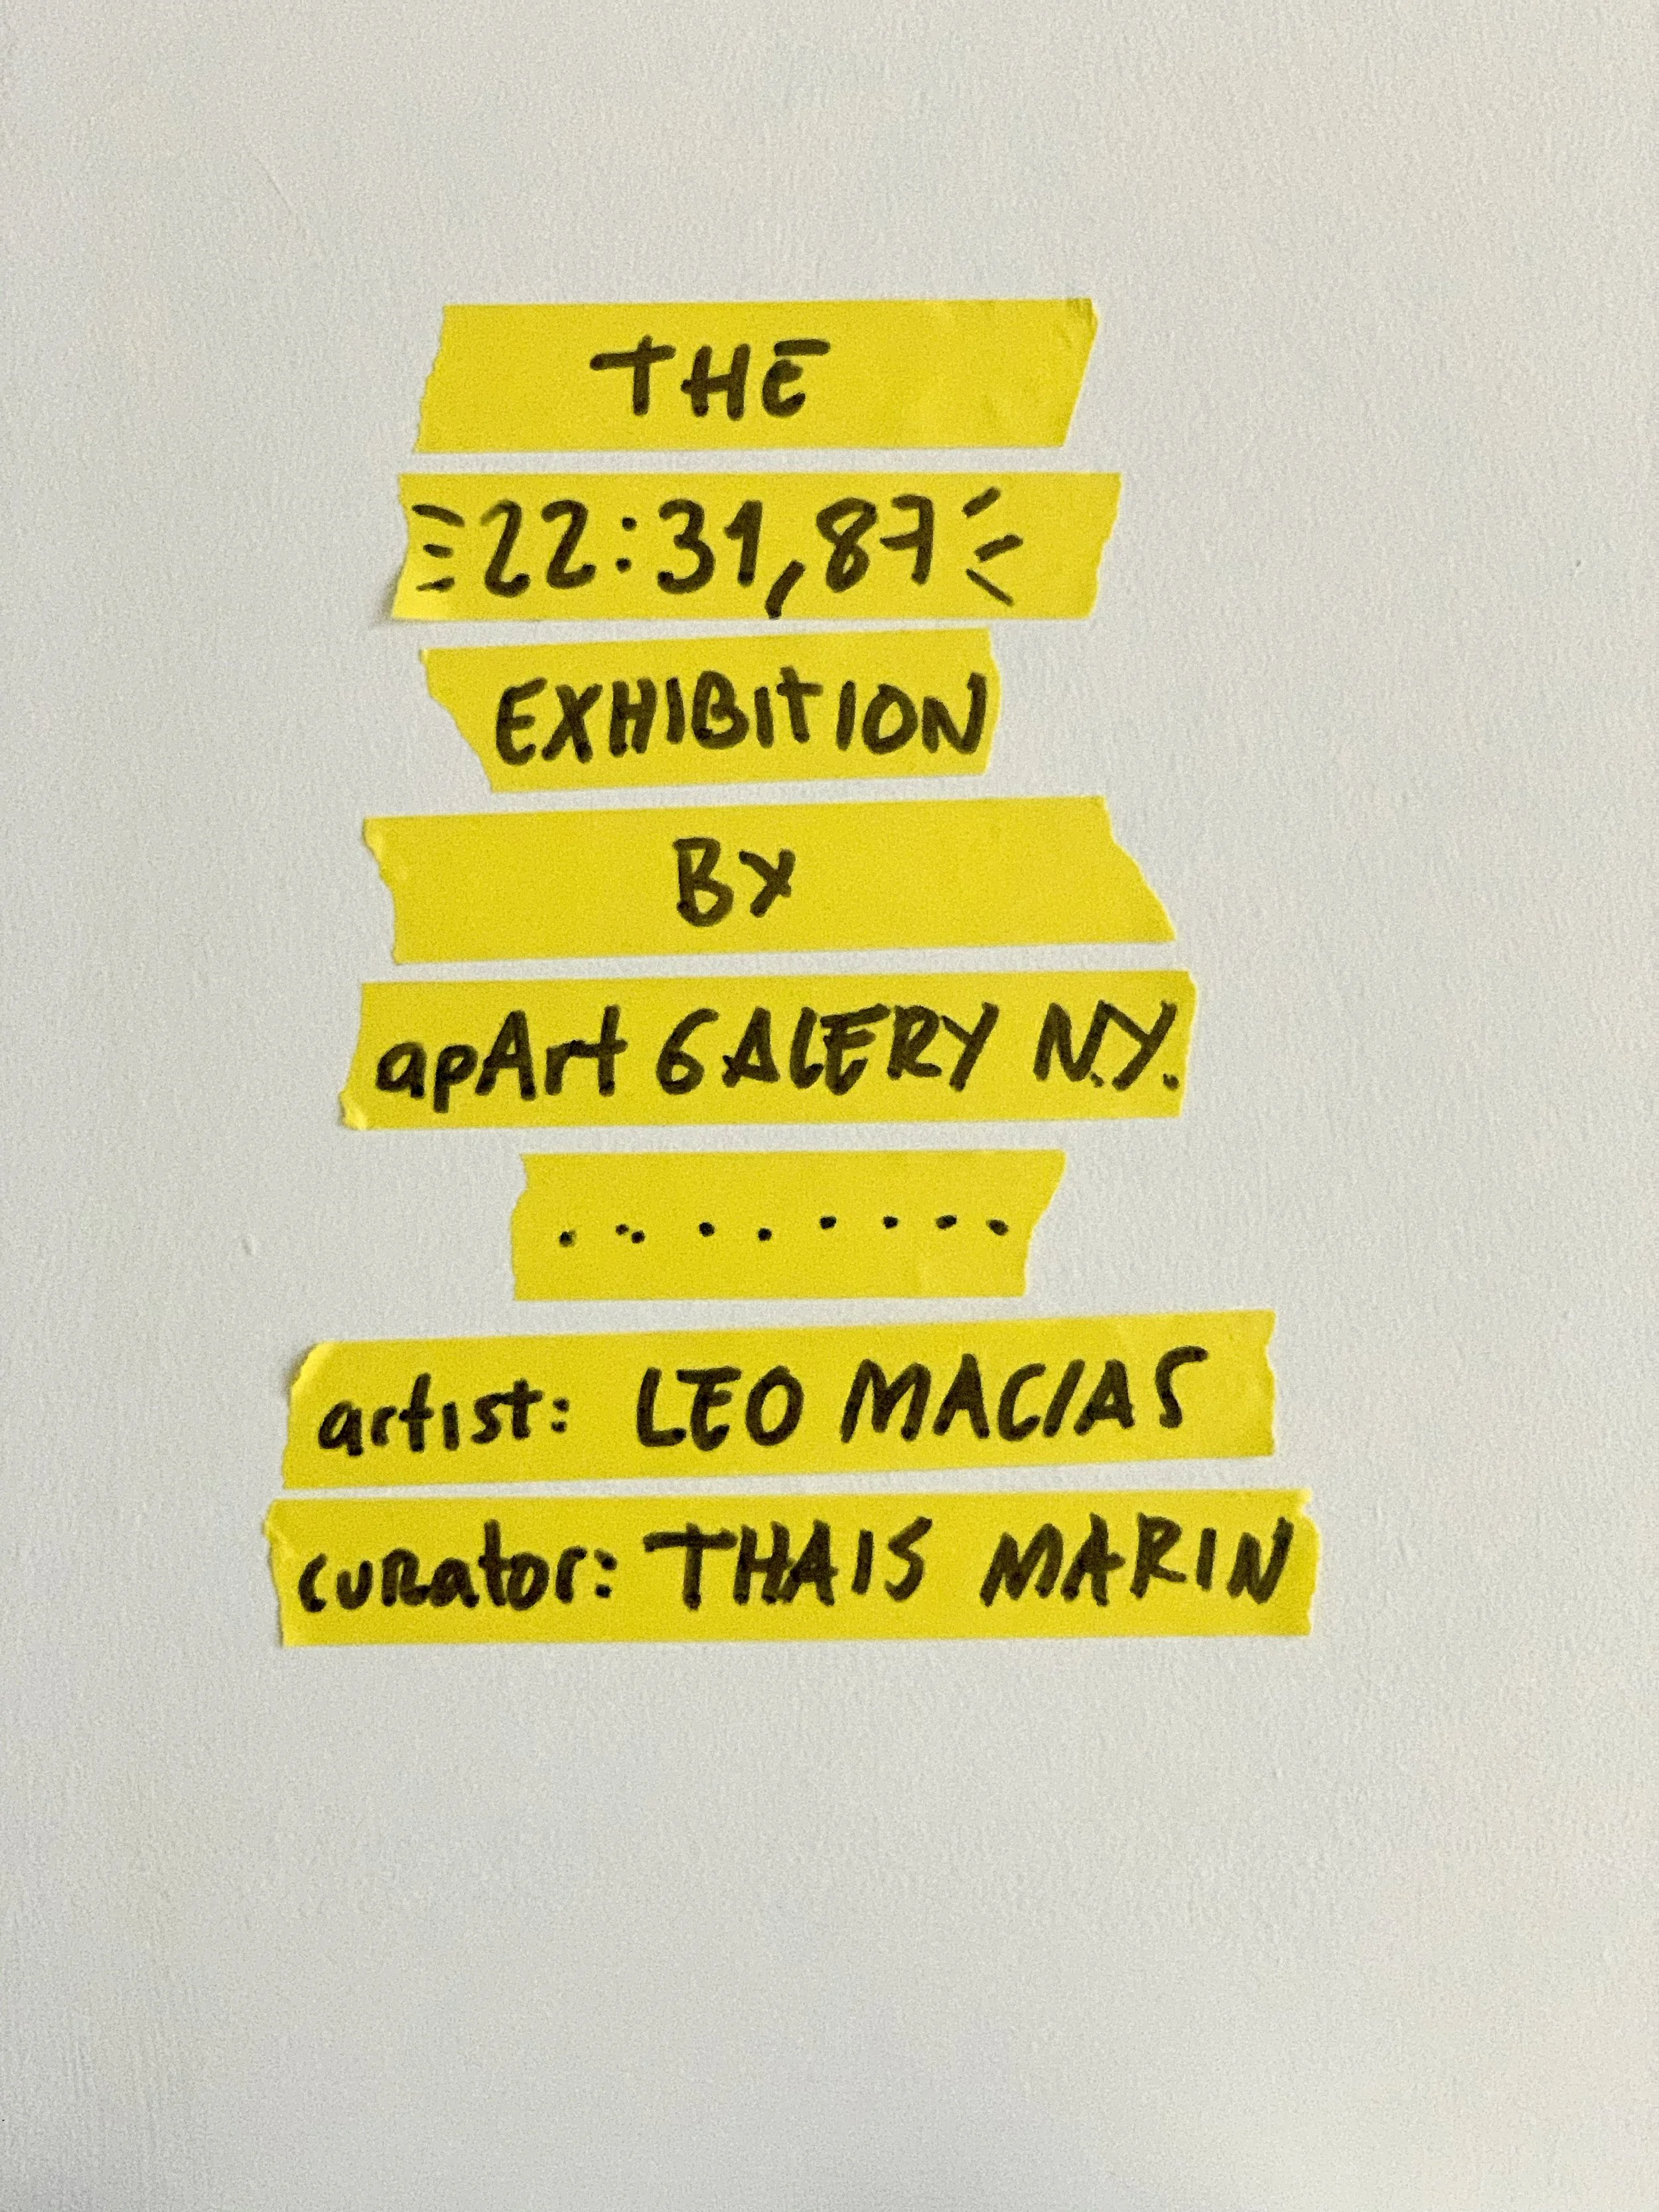 THE
22:31,87
EXHIBITION
BY
apArt GALERY N.Y.
.........
artist: LEO MACIAS
curator: THAIS MARIN